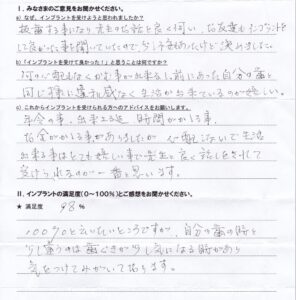 Ⅰ. みなさまのご意見をお聞かせください。
a) なぜ、インプラントを受けようと思われましたか？
抜歯する事になり先生の話を良く伺い、お友達もインプラントを
して良かった事を聞いていたので
b) 「インプラントを受けて良かった！」と思うことは何ですか？
何の心配もなくかむ事が出来るし前にあった自分の歯と
同じ様に違和感なく生活が出来ているのが嬉しい。
c) これからインプラントを受けられる方へのアドバイスをお願いします。
年令の事、出来上る迄時間がかかる事、
お金がかかる事がありましたが心配ないで生活
出来る事はとても嬉しい事で先生と良く話しをされて
受けられるのが一番と思います。
Ⅱ. インプラントの満足度(０～１００％)とご感想をお聞かせください。
★ 満足度 98 %
100%と言いたいところですが、自分の歯の時と
少し違うのは歯ぐきが少し気になる時があり
気をつけてみがいて居ります。